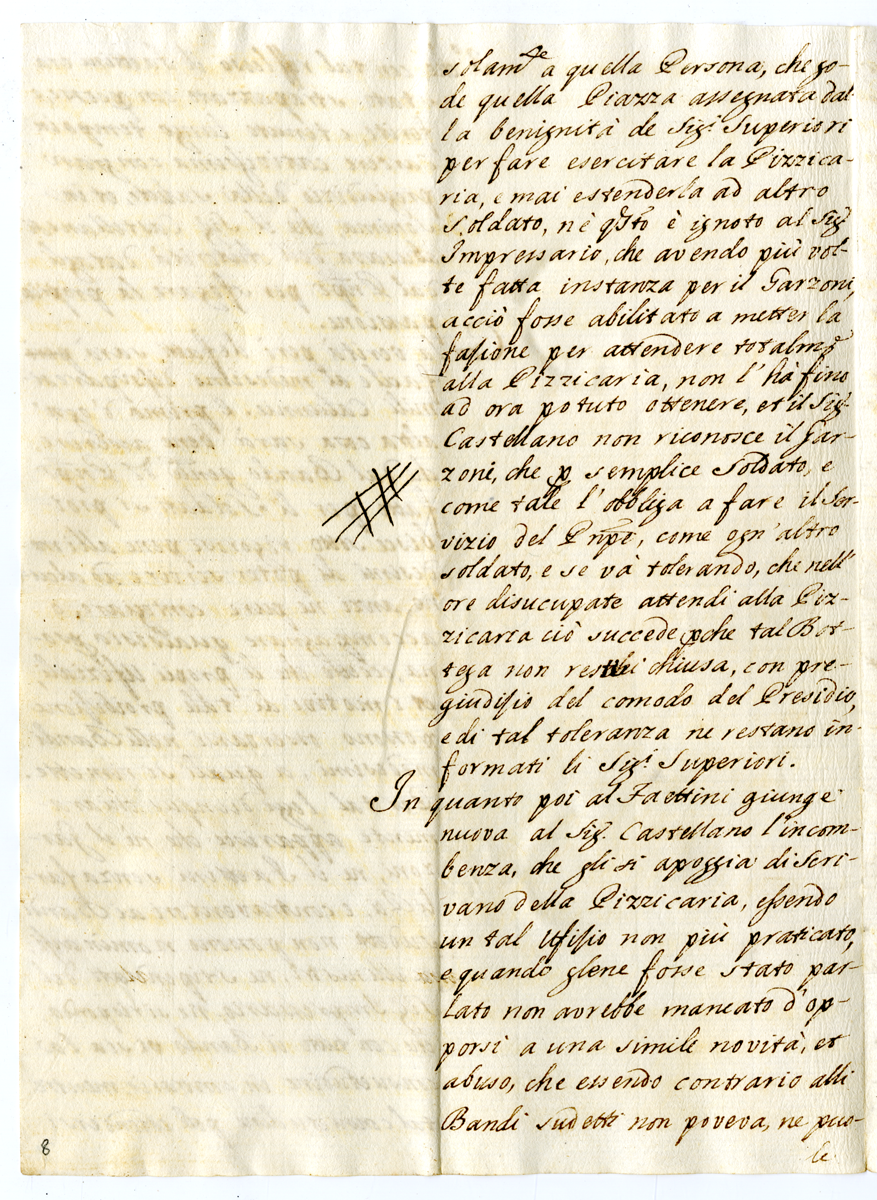 solam.te a quella Persona, che go-
de quella Piazza assegnata dal-
la benignità de Sig.i Superiori
per fare esercitare la Pizzica-
ria, e mai estenderla ad altro
Soldato, nè q.sto è ignoto al Sig.
Impressario, che avendo più vol-
te fatta instanza per il Garzoni,
acciò fosse abilitato a metter la
fasione per attendere totalm.e
alla Pizzicaria, non l'hà fino
ad ora potuto ottenere, et il Sig.
Castellano non riconosce il Gar-
zoni, che p semplice Soldato, e
come tale l'obbliga a fare il Ser-
vizio del Pnpe, come ogn'altro
soldato, e se và tolerando, che nell'
ore disucupate attendi alla Piz-
zicaria ciò succede pche tal Bot-
tega non resti chiusa, con pre-
giudisio del comodo del Presidio,
e di tal toleranza ne restano in-
formati li Sig.i Superiori.
In quanto poi al Faettini giunge
nuova al Sig. Castellano l'incom-
benza, che gli si apoggia di Scri-
vano della Pizzicaria, essendo
un tal Ufisio non più praticato,
e quando glene fosse stato par-
lato non avrebbe mancato d'op-
porsi a una simile novità, et
abuso, che essendo contrario alli
Bandi sudetti non poveva, ne puo-
le
8